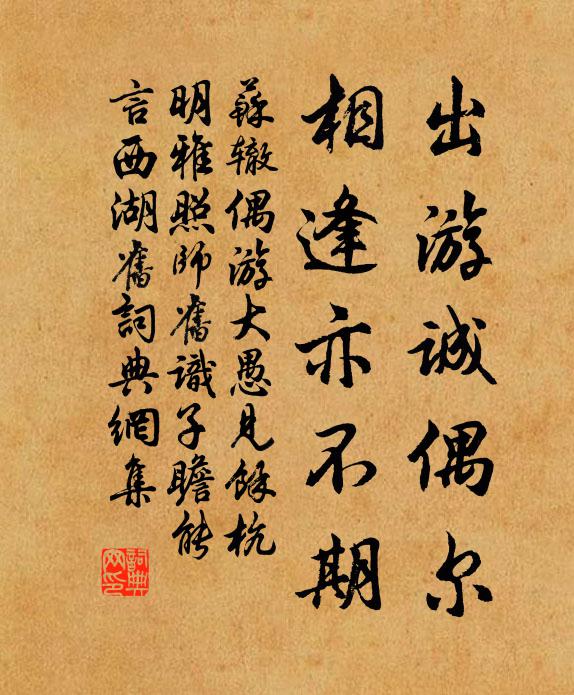 出游诚偶尔
相逢亦不期
蘇辙偶游大愚見餘杭
明雅照师舊識子瞻能
言西湖舊詞典網集
詞典网印